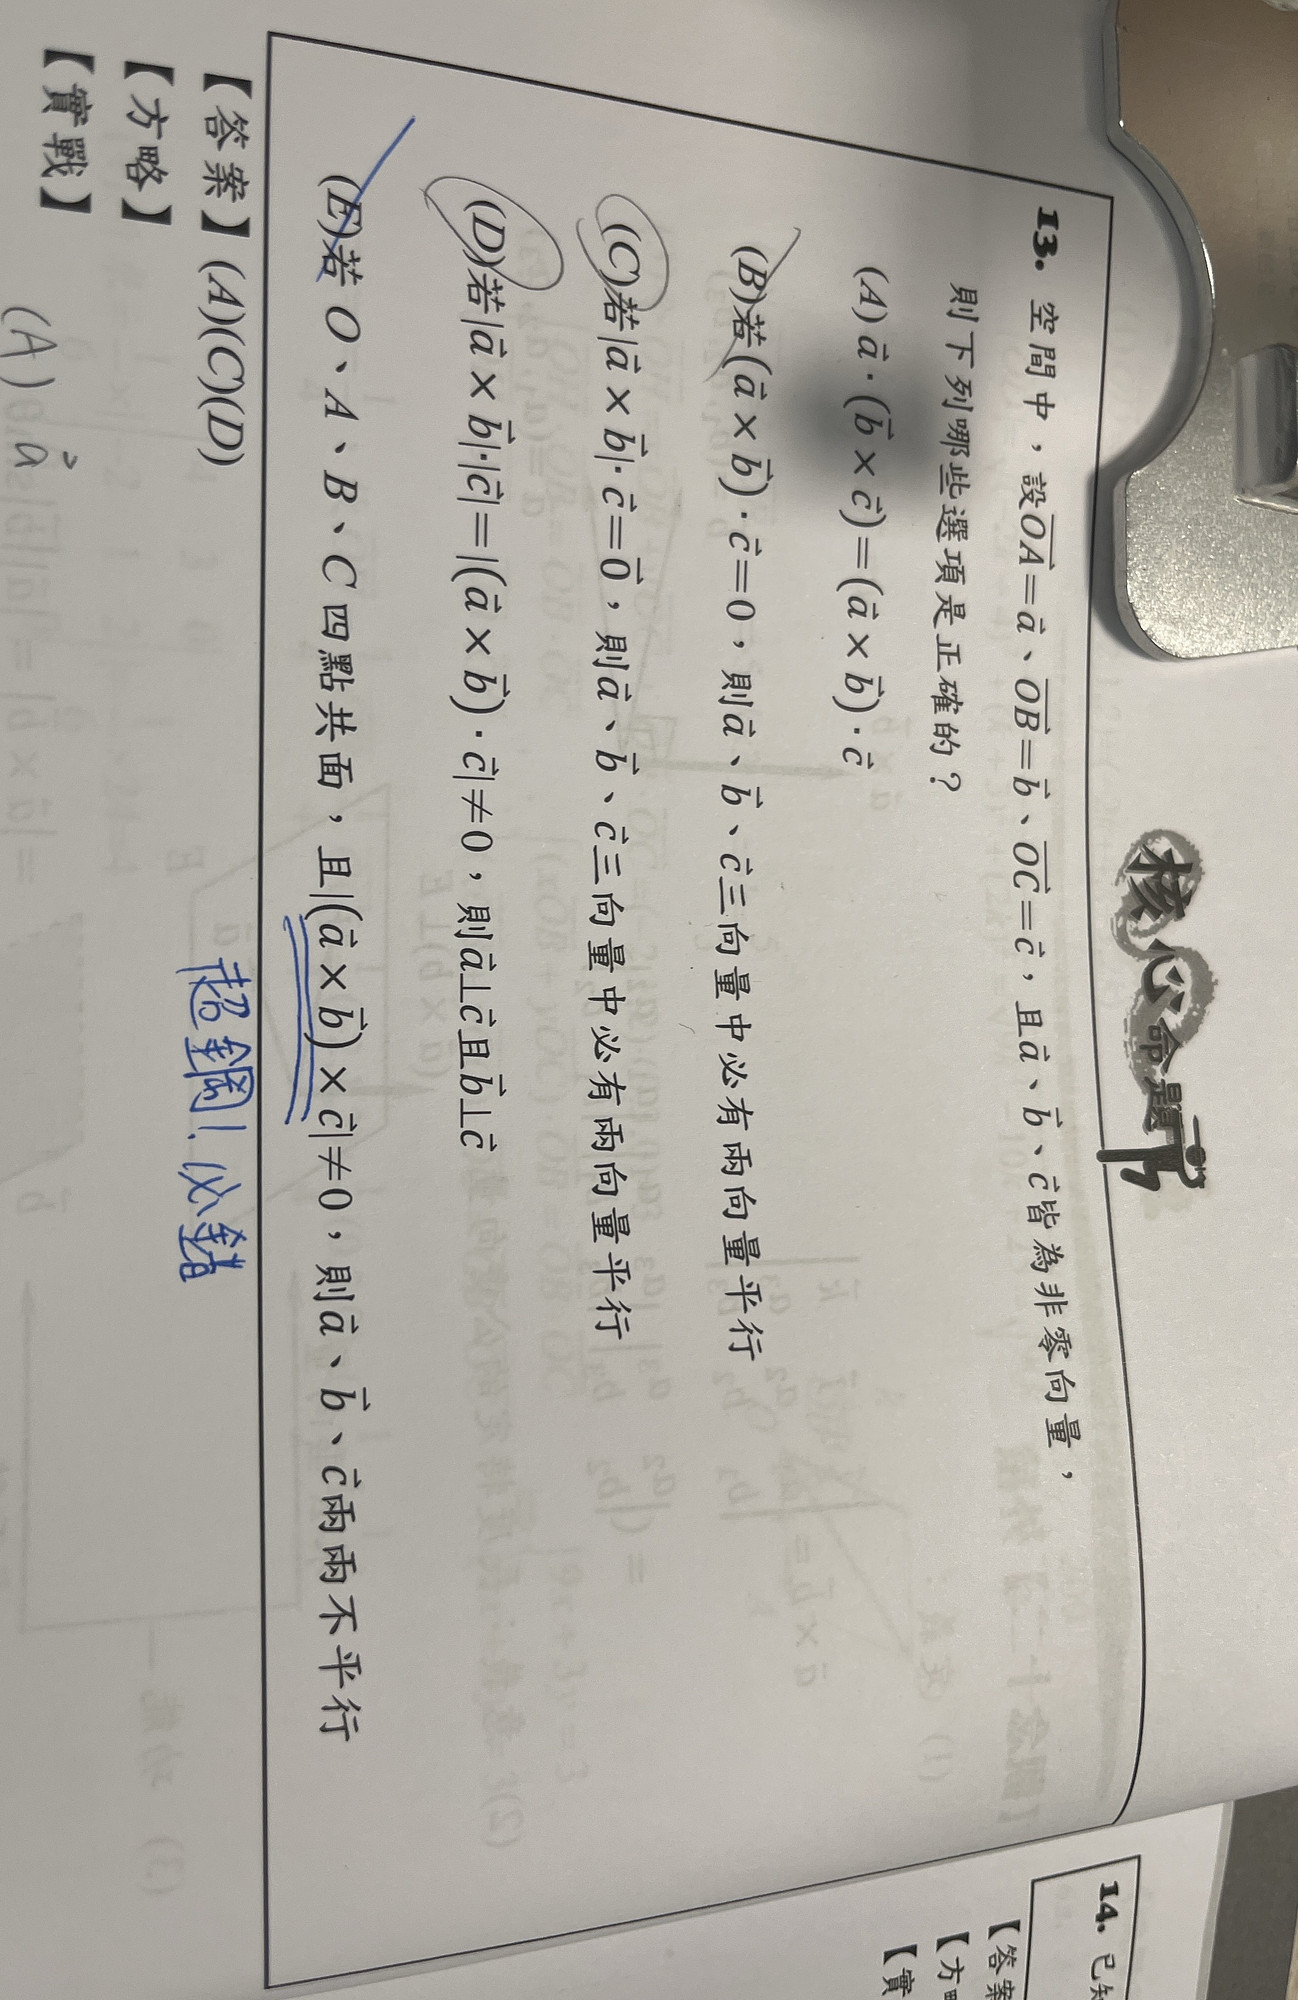 核心命題
13. 空間中，設$\overrightarrow{OA}=\vec{a}$、$\overrightarrow{OB}=\vec{b}$、$\overrightarrow{OC}=\vec{c}$，且$\vec{a}$、$\vec{b}$、$\vec{c}$皆為非零向量，
則下列哪些選項是正確的？
(A) $\vec{a}\cdot(\vec{b}\times\vec{c})=(\vec{a}\times\vec{b})\cdot\vec{c}$
(B)若$(\vec{a}\times\vec{b})\cdot\vec{c}=0$，則$\vec{a}$、$\vec{b}$、$\vec{c}$三向量中必有兩向量平行
(C)若$|\vec{a}\times\vec{b}|\cdot\vec{c}=\vec{0}$，則$\vec{a}$、$\vec{b}$、$\vec{c}$三向量中必有兩向量平行
(D)若$|\vec{a}\times\vec{b}|\cdot|\vec{c}|=|(\vec{a}\times\vec{b})\cdot\vec{c}|\neq0$，則$\vec{a}\perp\vec{c}$且$\vec{b}\perp\vec{c}$
(E)若 O、A、B、C 四點共面，且$|(\vec{a}\times\vec{b})\times\vec{c}|\neq0$，則$\vec{a}$、$\vec{b}$、$\vec{c}$兩兩不平行
【答案】(A)(C)(D)
【方略】
【實戰】
(A)
14. 已知
【答案
【方
【實